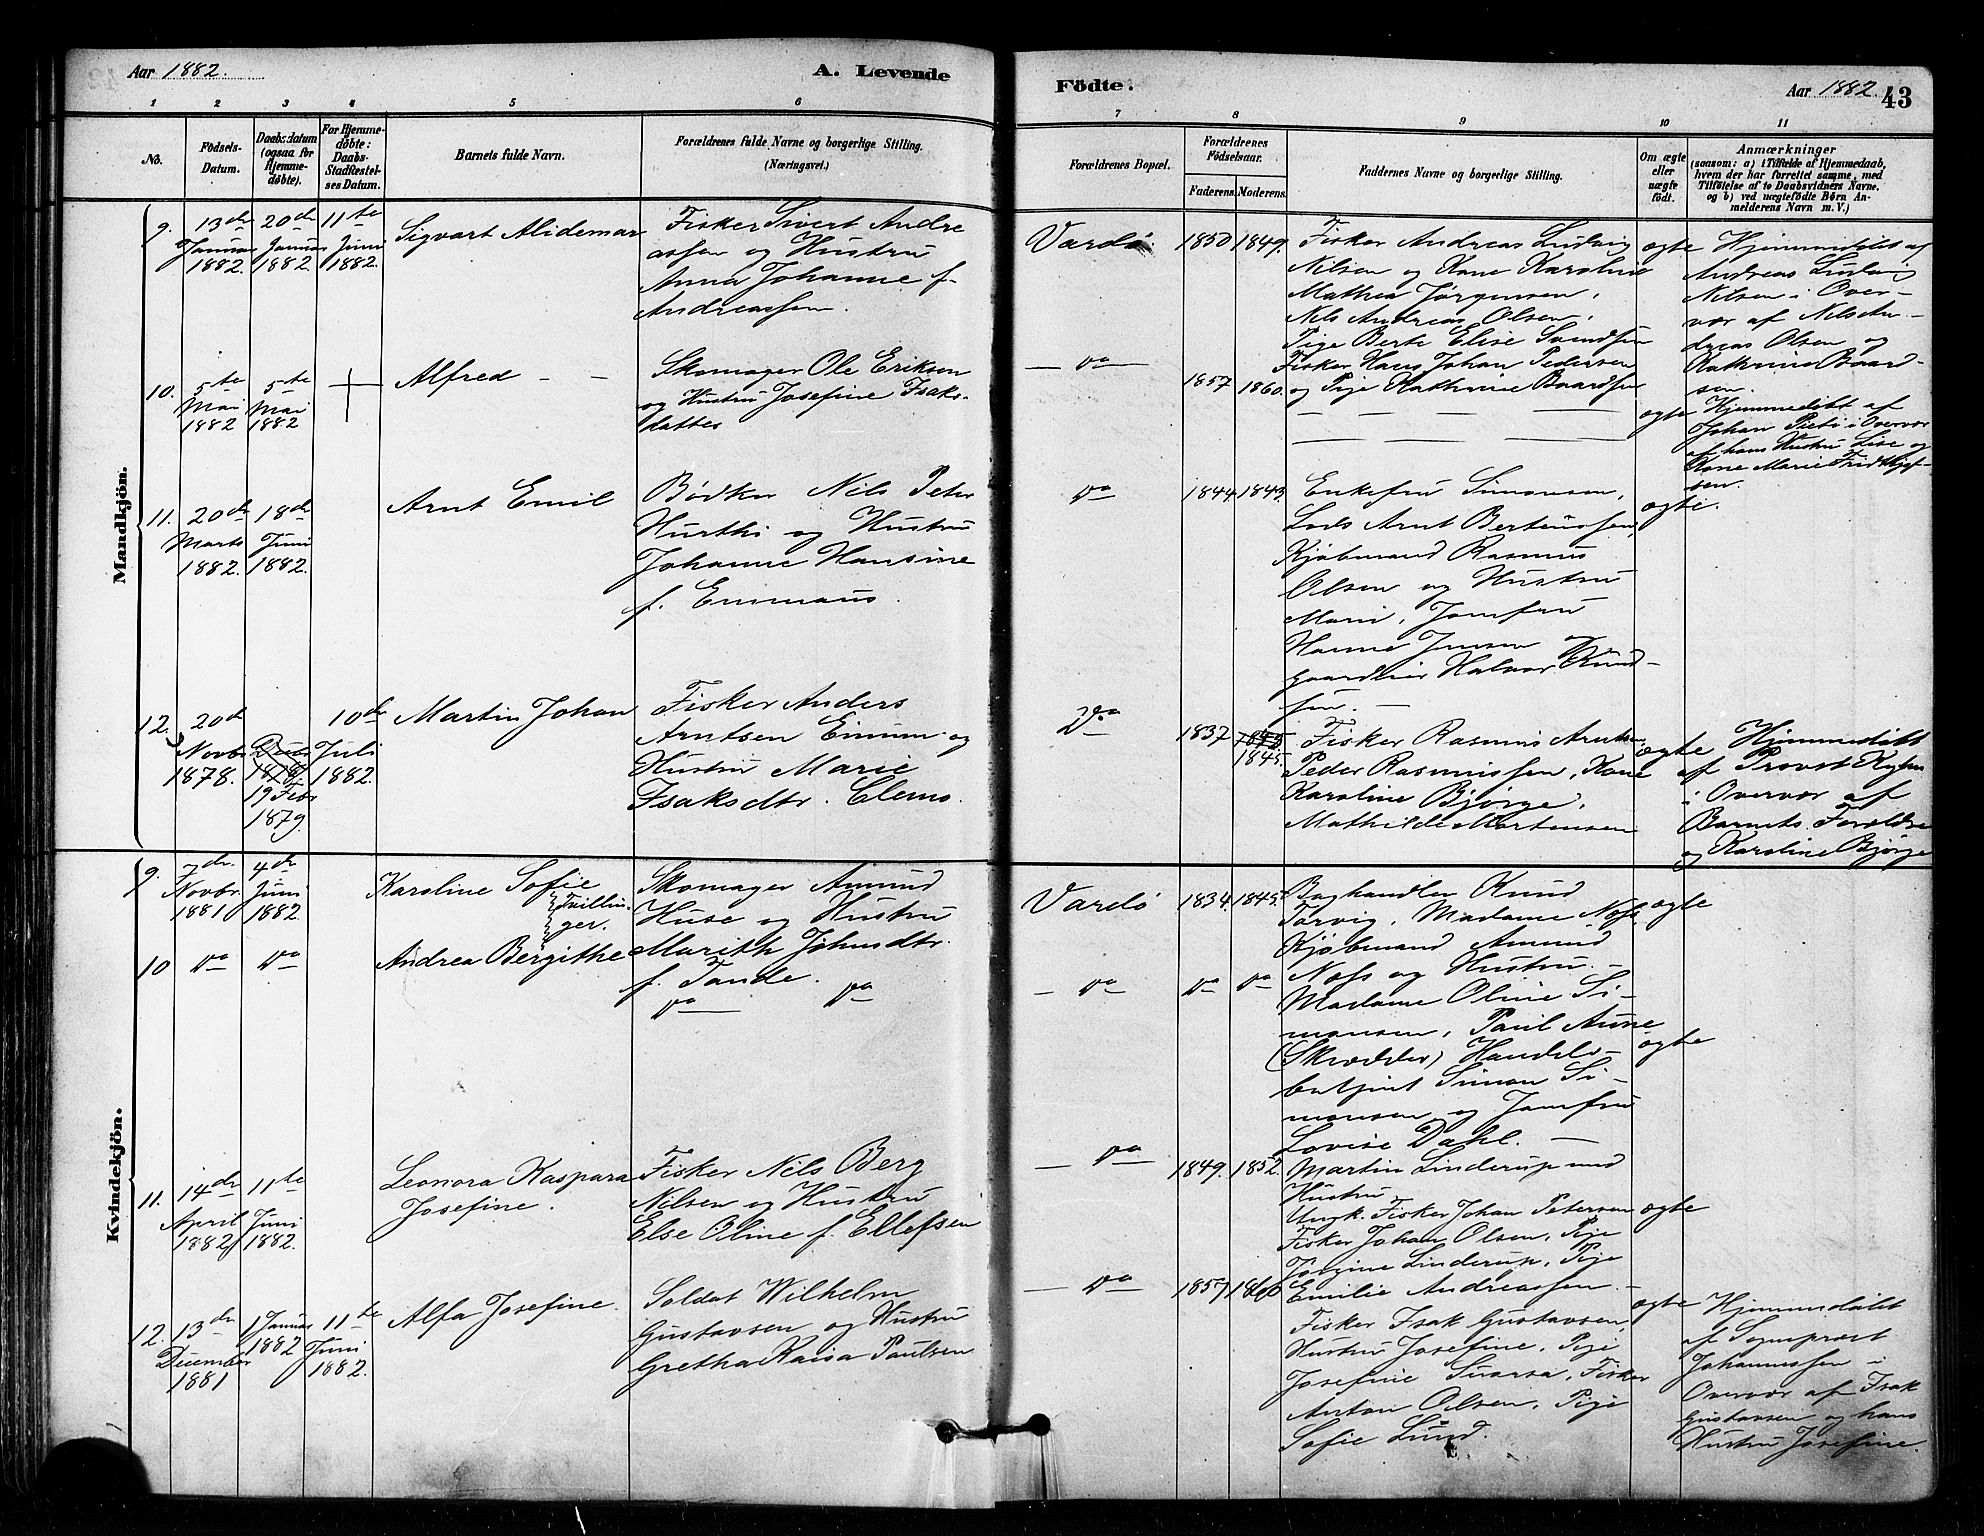 Aar 1882.
A. Levende
Födte.
Aar 1882.
43
1 2 3 4 5 6 7 8 9 10 11
No.
Födsels-
Datum.
Daabsdatum
(ogsaa for
Hjemme-
døbte).
For Hjemme-
døbte:
Daabs-
Stadfæstel-
ses Datum.
Barnets fulde Navn.
Forældrenes fulde Navne og borgerlige Stilling.
(Næringsvei.)
Forældrenes Bopæl.
Forældrenes
Födselsaar.
Faderens.
Moderens.
Faddernes Navne og borgerlige Stilling.
Om ægte
eller
uægte
födt.
Anmærkninger
(saasom: a) i Tilfælde af Hjemmedaab,
hvem der har forrettet samme, med
Tilföielse af to Daabsvidners Navne.
og b) ved uægtefödte Börn An-
melderens Navn m. V.)
Mandkjön.
9.
13de
Januar
1882.
20de
Januar
1882.
11te
Juni
1882.
Sigvart Alidemar
Fisker Sivert Andre
assen og Hustru
Anna Johanne f.
Andreassen.
Vardø.
1850
1849.
Fisker Andreas Ludvig
Nilsen og Kone Karoline
Mathea Jørgensen,
Nils Andreas Olsen,
Pige Berte Elise Svendsen
Fisker Hans Johan Pedersen
og Pige Kathrine Baardsen
ægte
Hjemmedøbt af
Andreas Ludvig
Nilsen i Over-
vær af Nils An-
dreas Olsen og
Kathrine Baard-
sen.
10.
5te
Mai
1882
5te
Mai
1882
Alfred - -
Skomager Ole Erikson
og Hustru Josefine Isaks-
datter
— do
1857
1860.
ægte
Hjemmedøbt af
Johan Pietø i Overvær
af hans Hustru Lise og
Kone Marie Fridthjof-
sen.
11.
20de
Marts
1882.
18de
Juni
1882.
Arnt Emil
Bødker Nils Peter
Hurthi og Hustru
Johanne Hansine
f. Emmaus.
do
1844.
1843.
Enkefru Simonsen,
Lods Arnt Berteussen,
Kjøbmand Rasmus
Olsen og Hustru
Marie, Jomfru
Hanne Jensen
gaardeier Halvor Knud-
sen. —
ægte.
12.
20de
Novbr
1878.
19 Febr
1879.
10de
Juli
1882.
Martin Johan
Fisker Anders
Arntsen Einum og
Hustru Marie
Isaksdtr. Clemo.
Do
1837
1845.
Fisker Rasmus Arntsen,
Peder Rasmussen, Kone
Karoline Bjørge,
Mathilde Mortensen
ægte
Hjemmedøbt
af Provst
i Overvær af
Barnets Forældre
og Karoline Bjørge
Kvindekjön.
9.
7de
Novbr.
1881
4de
Juni
1882.
Karoline Sofie
Tvillin-
ger.
Skomager Amund
Huse og Hustru
Marith Johnsdtr.
f. Tande.
Vardø
1834.
1845.
Boghandler Knud
Torvig, Madame Noss
Kjøbmand Amund
Noss og Hustru. —
Madame Oline Si-
monsen, Paul Aune
(Skrædder) Handels-
betjent Simon Si-
monsen og Jomfru
Lovise Dahl. —
ægte
10
do
do
Andrea Bergithe
do — do
— do
do
do
ægte
11.
14de
April
1882
11te
Juni
1882.
Leonora Kaspara
Josefine.
Fisker Nils Berg
Nilsen og Hustru
Else Oline f. Ellefsen
— do
1849.
1852.
Martin Linderup med
Hustru
Ungk. Fisker Johan Petersen
Fisker Johan Olsen, Pige
Jørgine Linderup, Pige
Emilie Andreassen. —
ægte
12.
13de
December
1881
1 Januar
1882
11te
Juni
1882.
Alfa Josefine.
Soldat Wilhelm
Gustavsen og Hustru
Gretha Kaisa Paulsen
— do
1857
1860
Fisker Isak Gustavsen
Hustru Josefine, Pige
Josefine Svarsa, Fisker
Anton Olsen, Pige
Sofie Lund.
ægte
Hjemmedøbt
af Sognepræst
Johannessen i
Overvær af Isak
Gustavsen og hans
Hustru Josefine.